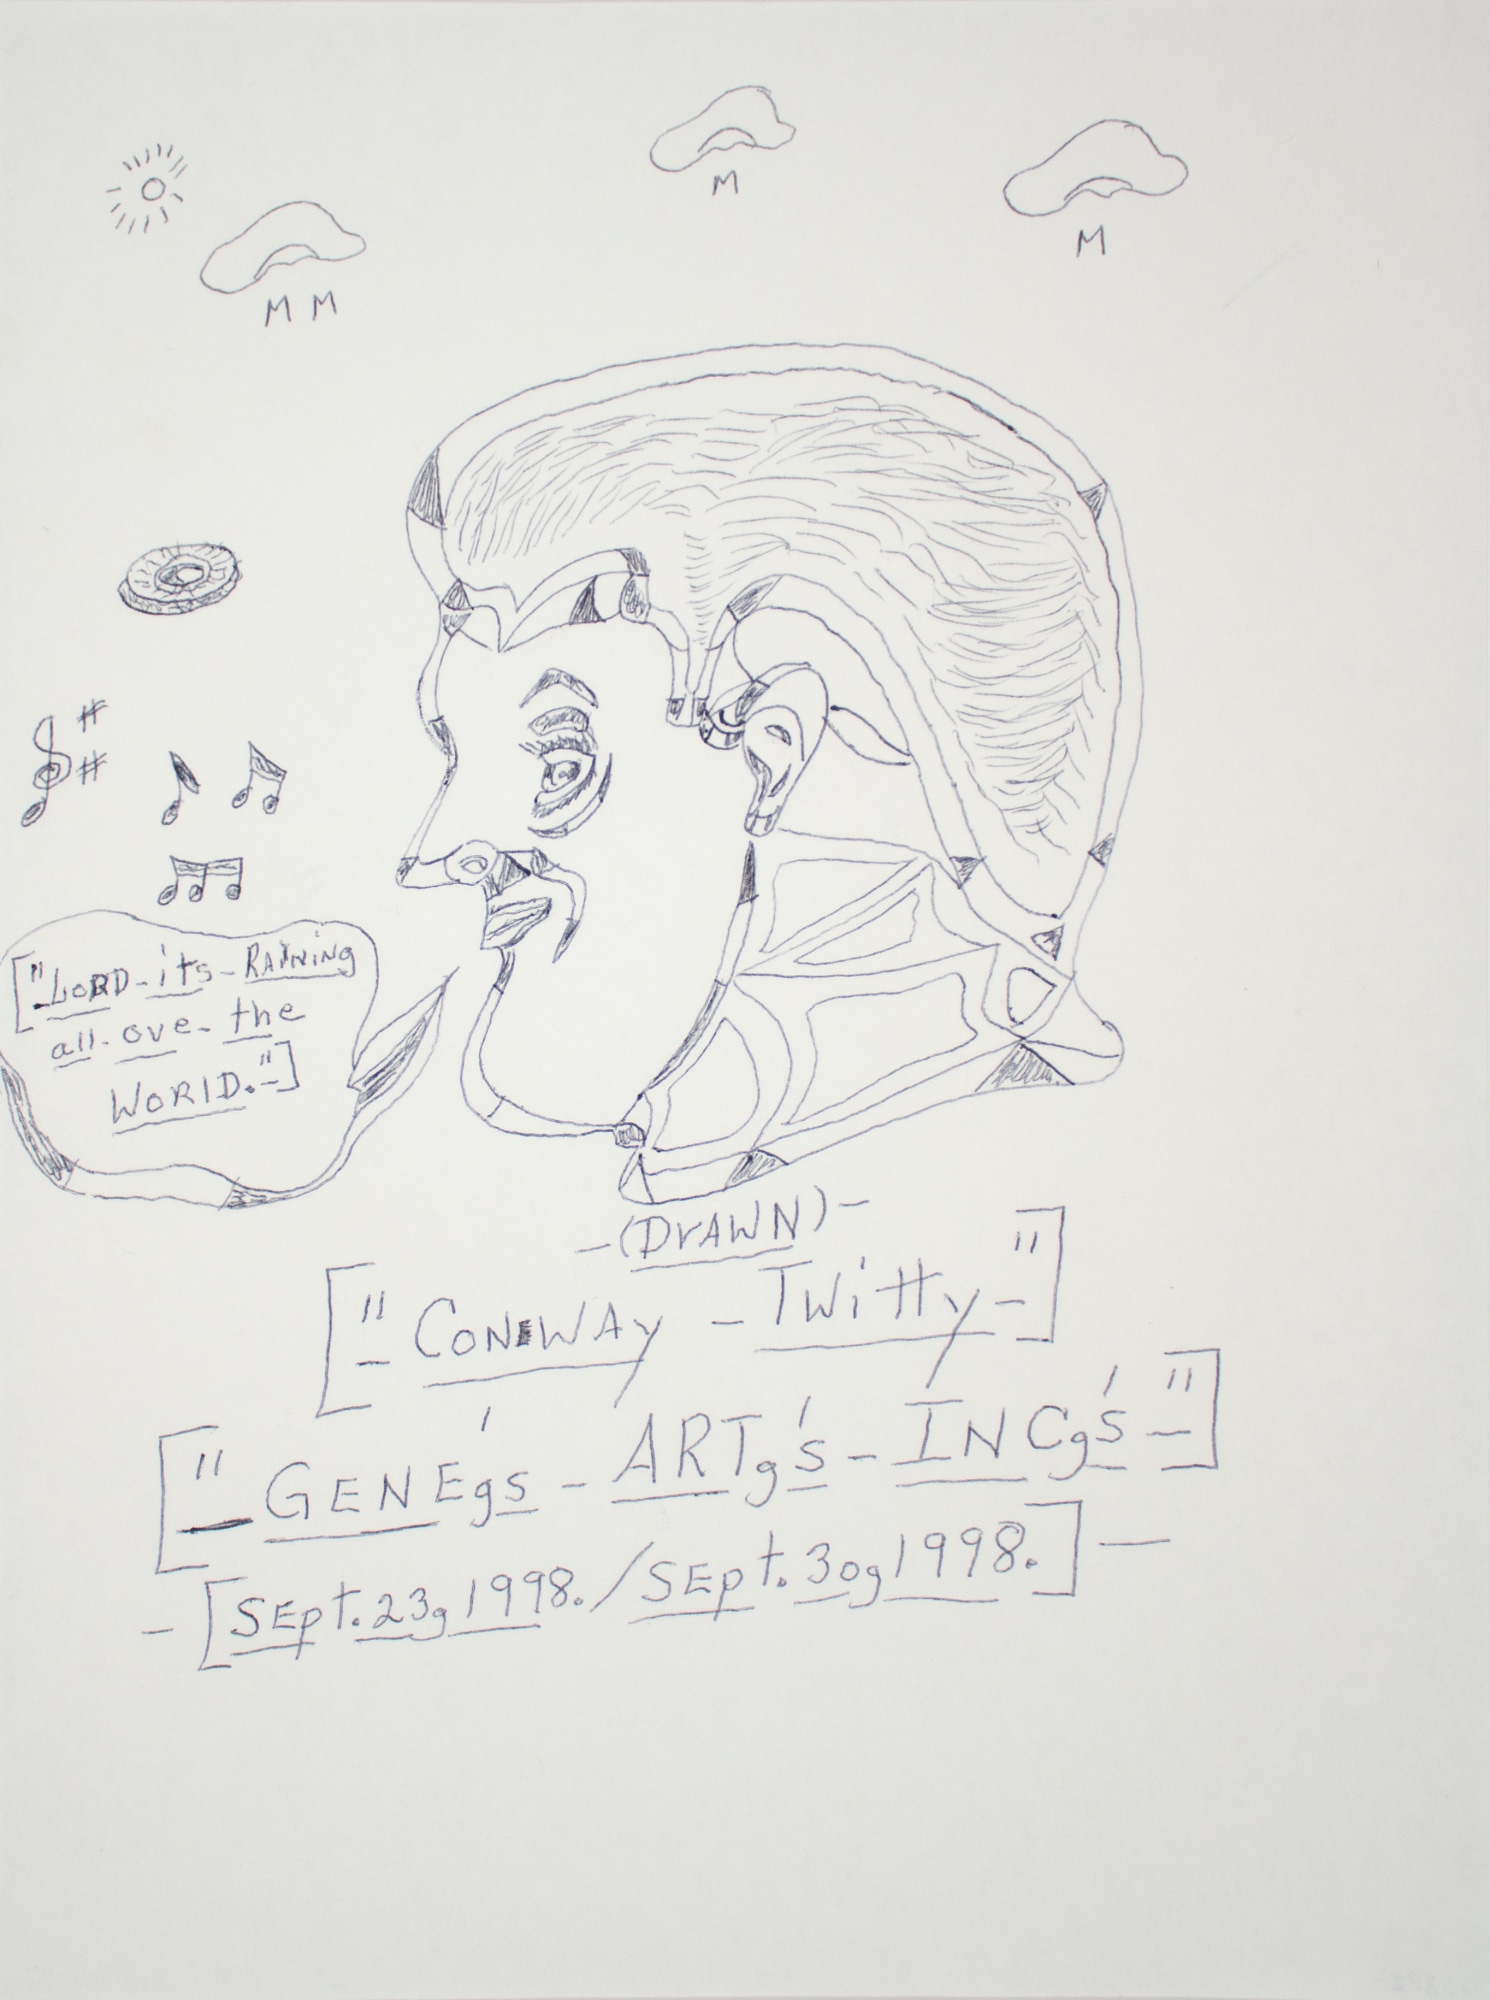 M
M
M M
# 
#
["-LORD-its-RAiNiNg
all-ove-the
WORlD."-]
-(DrAWN)-
["-CONWAy-TWitty-"]
["-GENEg's-ARTg's-INCg's-"]
-[SEpt.23g1998./SEpt.30g1998.]-